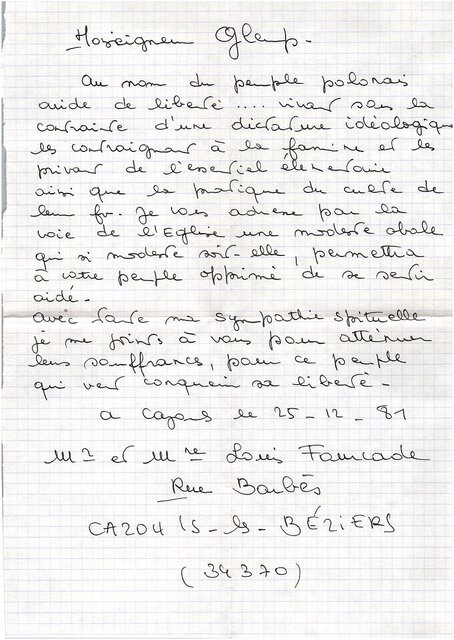 Monseigneur Glemp.
Au nom du peuple polonais
avide de liberté .... vivant sous la
contrainte d'une dictature idéologique
les contraignant à la famine et les
privant de l'essentiel élémentaire
ainsi que la pratique du culte de
leur foi. Je vous adresse par la
voie de l'Eglise une modeste obole
qui si modeste soit-elle, permettra
à votre peuple opprimé de se sentir
aidé.
avec toute ma sympathie spirituelle
je me joins à vous pour atténuer
leurs souffrances, pour ce peuple
qui veut conquérir sa liberté.
a Cazouls le 25-12-81
Mr et Mme Louis Fourcade
Rue Barbès
CAZOULS-ls-BÉZIERS
(34370)